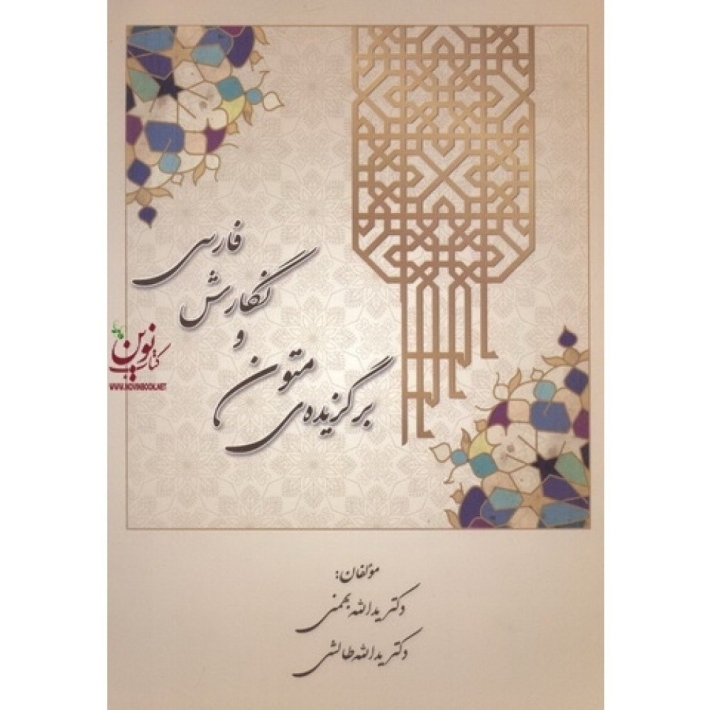 برگزیده‌ی متون و نگارش فارسی
کتاب نوین
WWW.NOVINBOOK.NET
مؤلفان:
دکتر یدالله بهمنی
دکتر یدالله طالشی